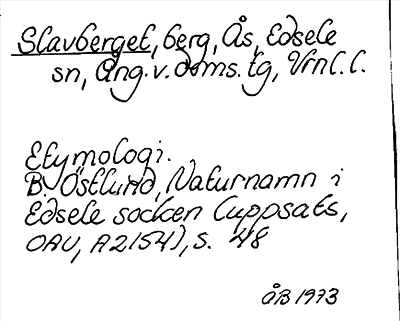 Slavberget, berg, Ås, Edsele
sn, Ång.v.doms.tg, Vrnl.l.
Etymologi.
B. Östlund, Naturnamn i
Edsele socken (uppsats,
OAU, A2154), s. 48
ÅB 1973